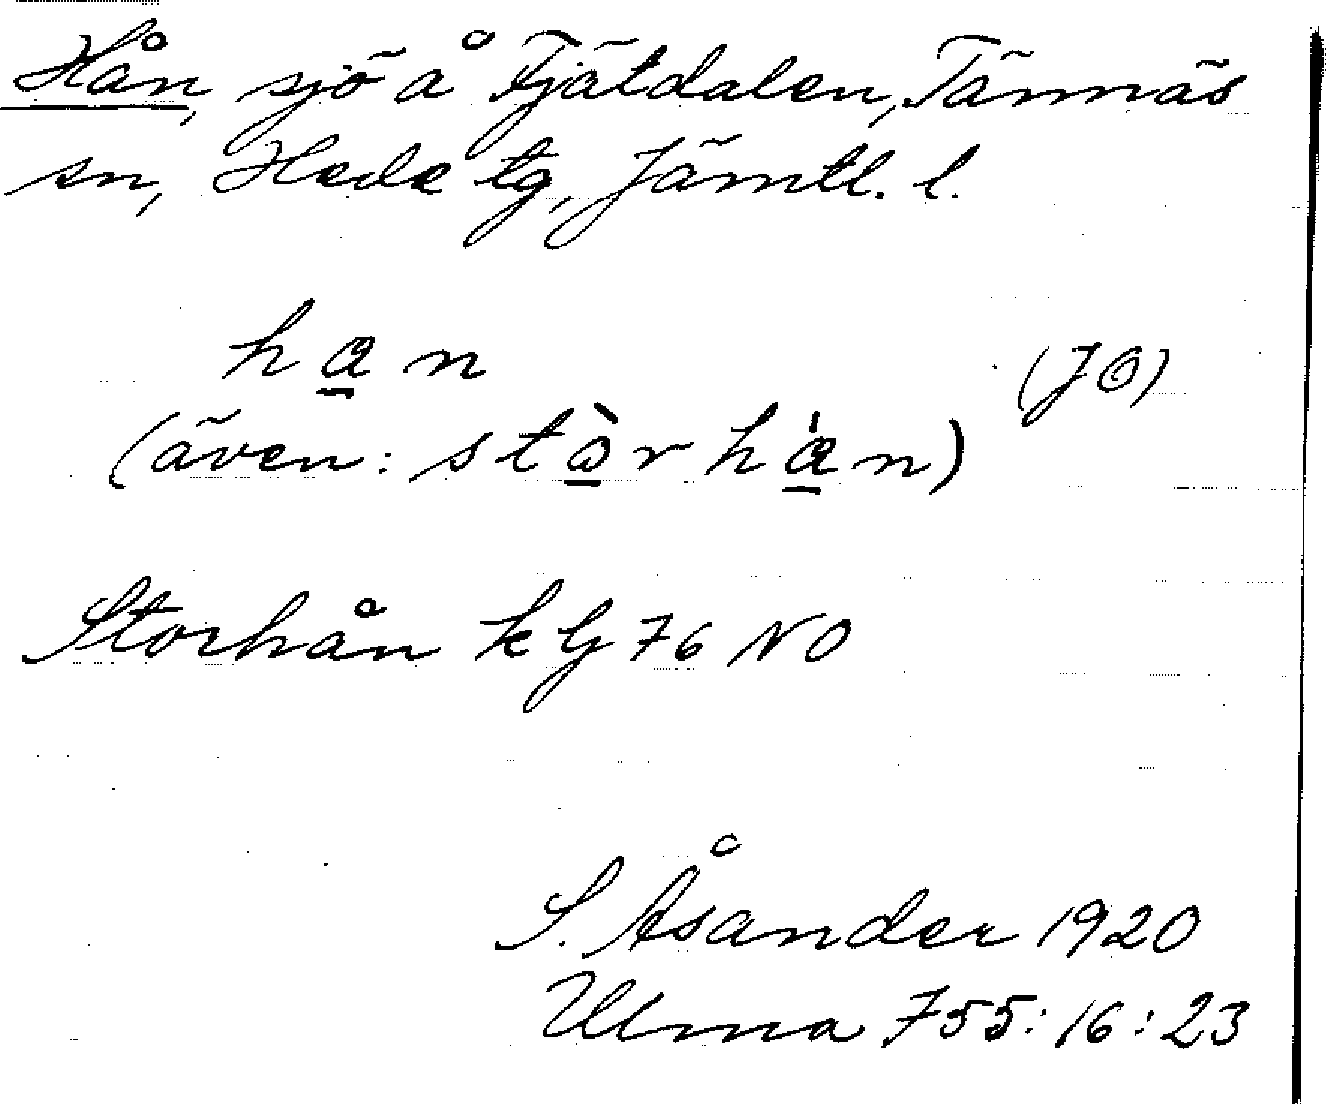 Hån, sjö å Fjätdalen, Tännäs
sn, Hede tg, Jämtl. l.
han
(JÖ)
(även: stòrhán)
Storhån k G 76 NO
S. Åsander 1920
Ulma 755:16:23